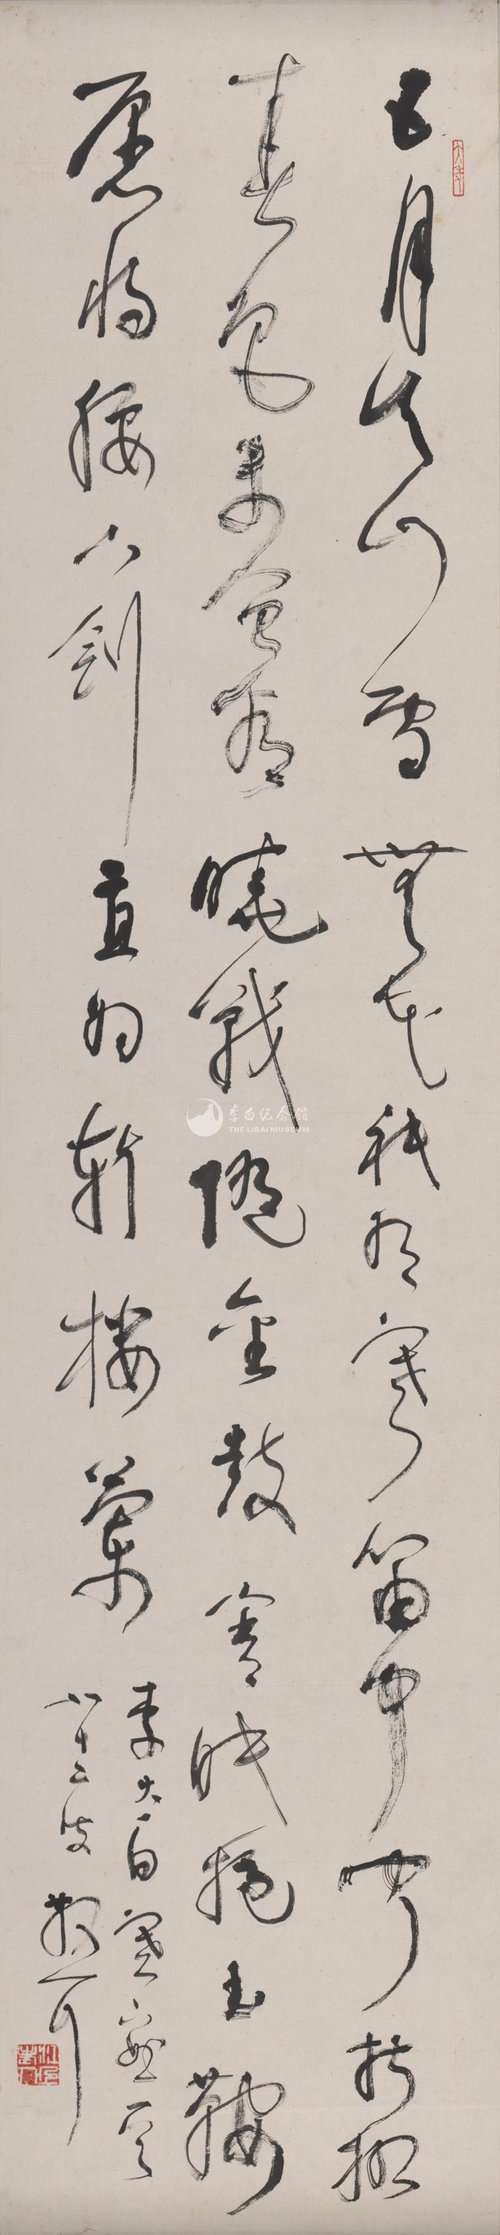 五月天山雪無花祇有寒笛中聞折柳
春色未曾看曉戰隨金鼓宵眠抱玉鞍
愿将腰下劍直为斬楼蘭
李太白塞下
八十二叟 散耳
李白纪念馆
THE LIBAI MUSEUM